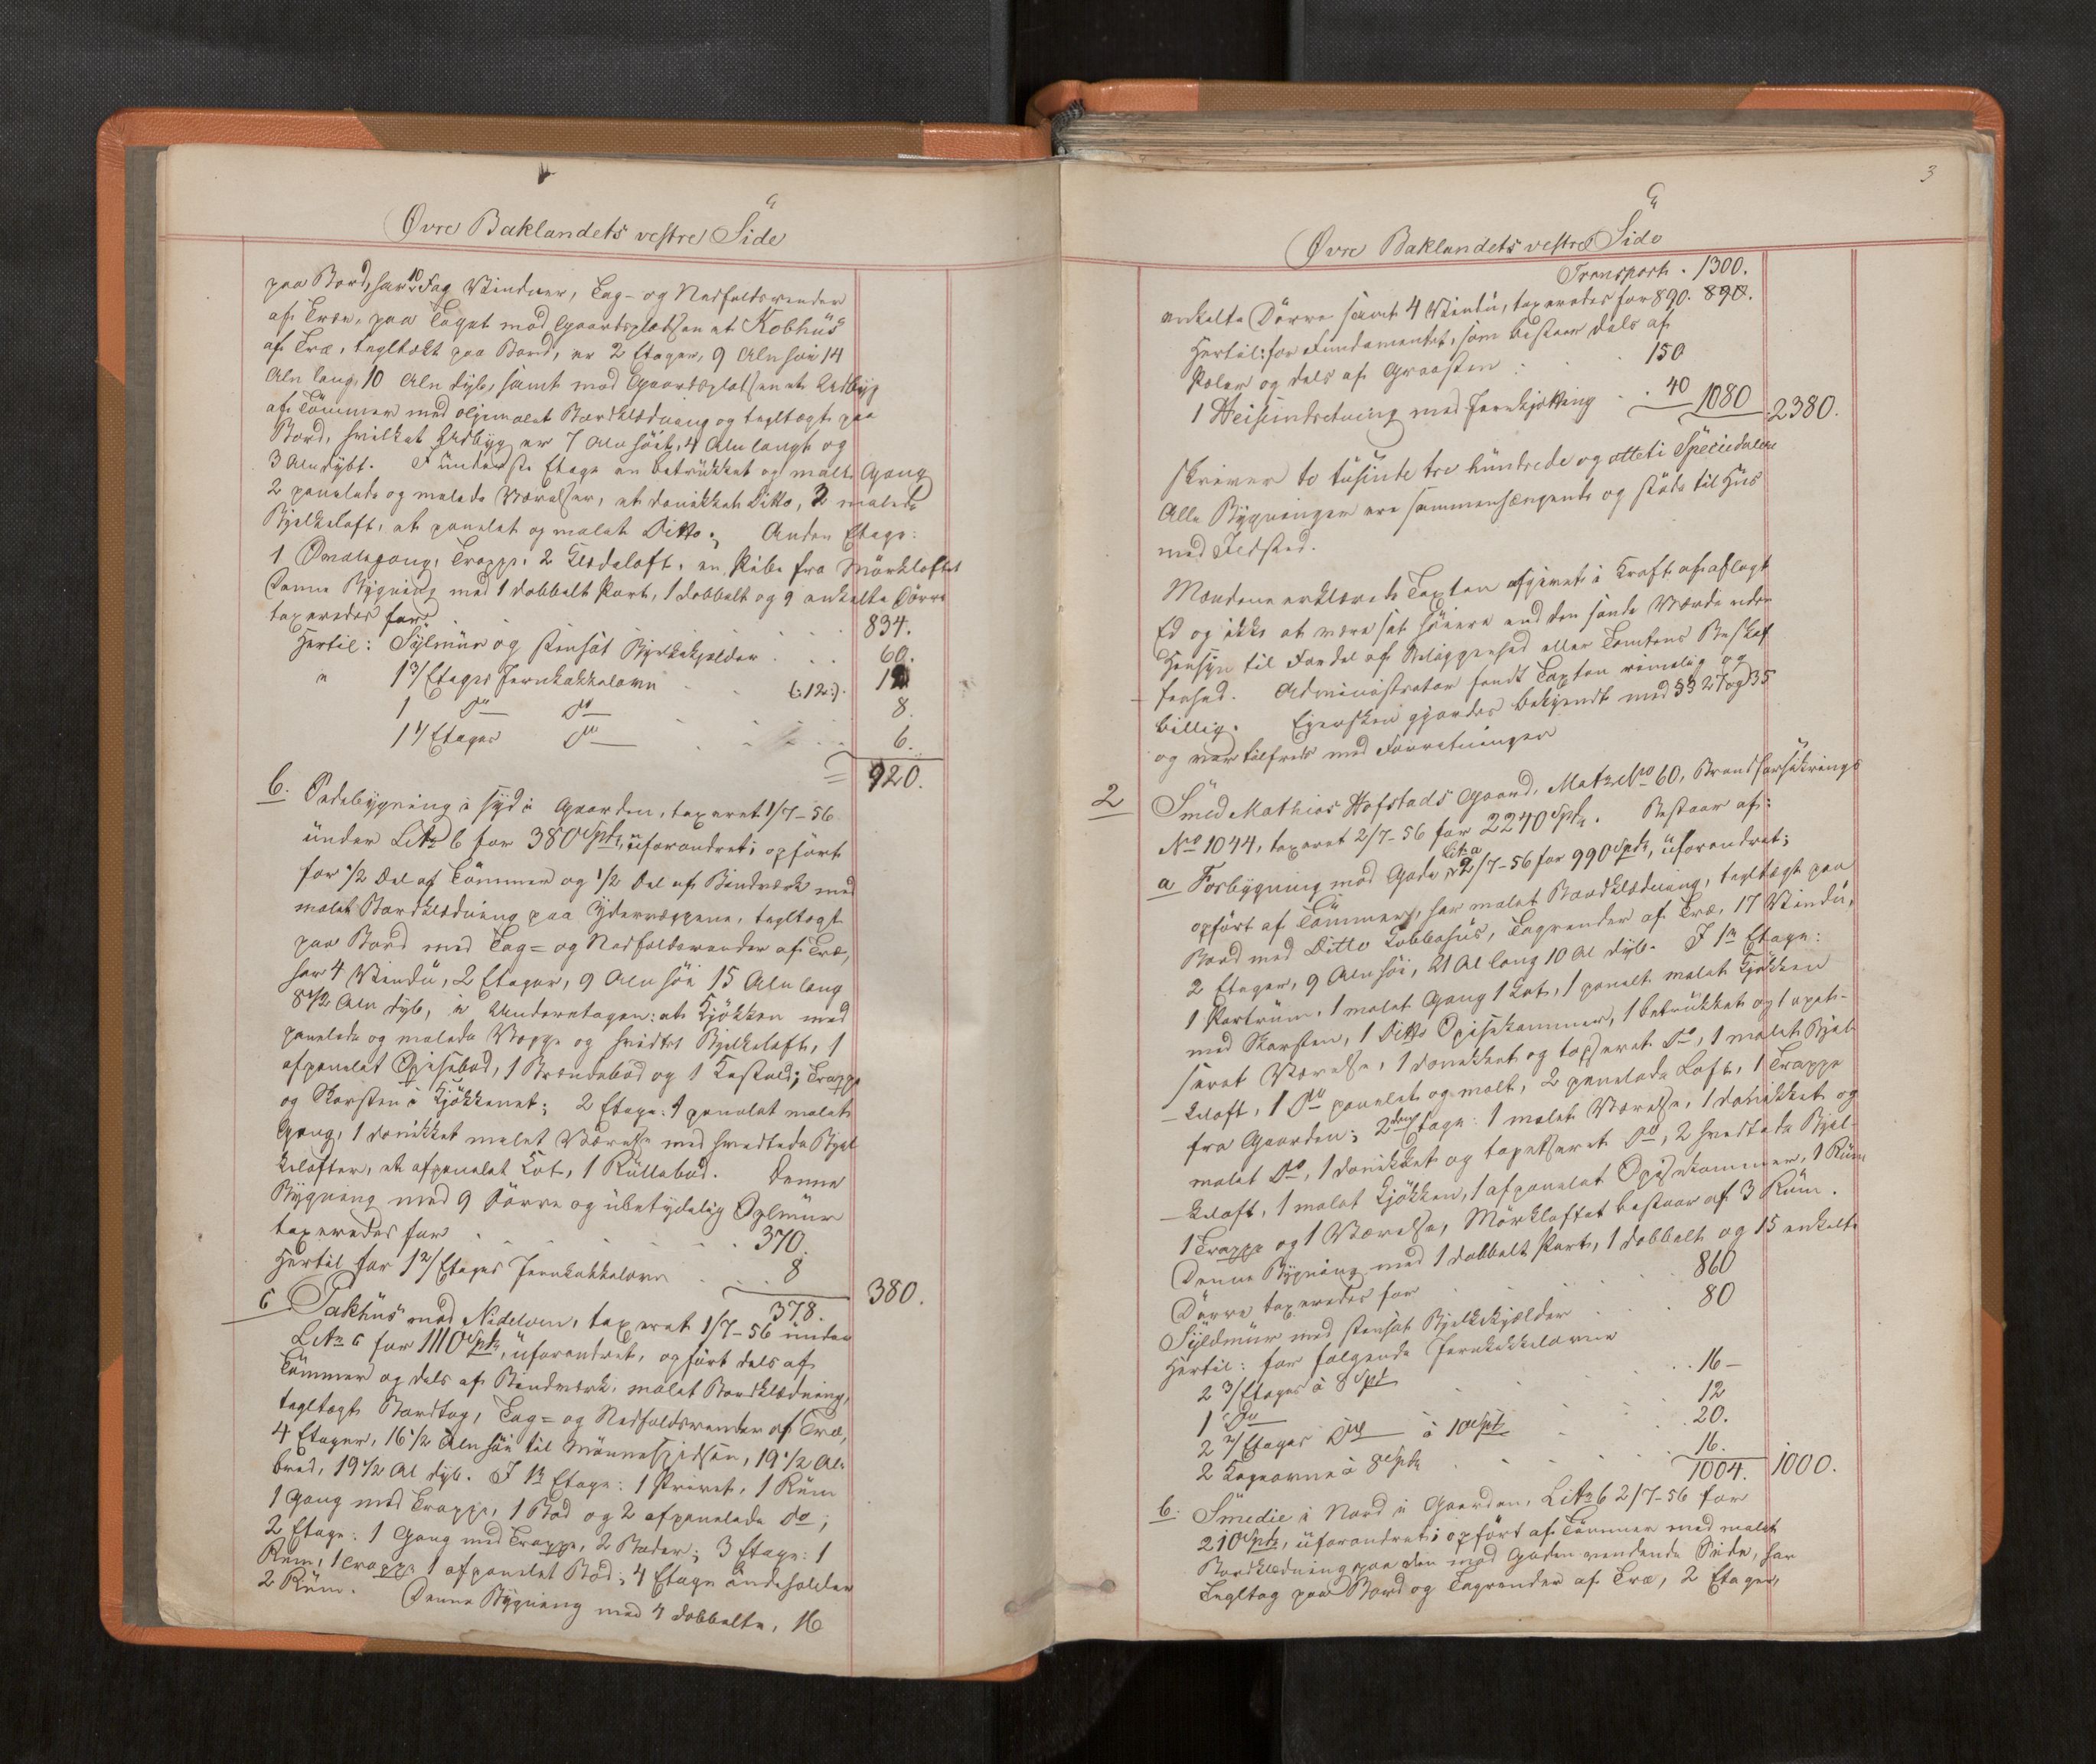 Øvre Baklandets vestre Side
paa Bord, har 10 Fag Vinduer, Tag- og Nedfaldsrender
af Træ, paa Taget mod Gaardspladsen et Kobhus
af Træ, tegltækt paa Bord, er 2 Etager, 9 Aln høi 14
Aln lang, 10 Aln dyb, samt mod Gaardspladsen et Udbyg
af Tømmer med oljemalet Bordklædning og tegltægt paa
Bord, hvilket Udbyg er 7 Aln høit, 4 Aln langt og
3 Aln dybt. I underste Etage en betrukket og malt Gang
2 panelede og malede Værelser, et donikket Ditto, 2 malede
Bjelkeloft, et panelet og malet Ditto; Anden Etage:
1 Omalegang, Trappe, 2 Klædeloft, en Pibe fra Mørkloftet
Denne Bygning med 1 dobbelt Port, 1 dobbelt og 9 enkelte Dørre
taxeredes for 834.
Hertil: Sylmur og stensat Bjelkekjelder 60.
" 1 3/Etages Jernkakkelovn (:12:) 12
1 Do Do 8.
1 1/Etages Do 6.
= 920.
b. Sidebygning i Syd i Gaarden, taxeret 1/7-56
under Litr b for 380 Spd, uforandret; opført
for 1/2 Del af Tømmer og 1/2 Del af Bindværk med
malet Bordklædning paa Ydervæggene, tegltægt
paa Bord med Tag= og Nedfaldsrender af Træ,
har 4 Vindu, 2 Etager, 9 Aln høi 15 Aln lang
8 1/2 Aln dyb, i Underetagen: et Kjøkken med
panelede og malede Vægge og hvidtet Bjelkeloft, 1
afpanelet Spisebod, 1 Brændebod og 1 Kostald; Trappe
og Skorsten i Kjøkkenet; 2 Etage: 1 panelet malet
Gang, 1 donikket malet Værelse med hvidtede Bjel
kelofter, et afpanelet Kot, 1 Rullebod. Denne
Bygning med 9 Dørre og ubetydelig Sylmur
taxeredes for 370.
Hertil for 1 2/Etages Jernkakkelovn 8
378. 380.
c Pakhus mod Nidelven, taxeret 1/7-56 under
Litr c for 1110 Spd, uforandret, opført dels af
Tømmer og dels af Bindværk, malet Bordklædning,
tegltægt Bordtag, Tag= og Nedfaldsrender af Træ,
4 Etager, 16 1/2 Aln høi til Mønnespidsen, 19 1/2 Al
bred, 19 1/2 Al dyb. I 1ste Etage: 1 Privet, 1 Rum
1 Gang med Trappe, 1 Bod og 2 afpanelede Do;
2 Etage: 1 Gang med Trappe, 2 Boder; 3 Etage: 1
Rum, 1 Trappe 1 afpanelet Bod; 4 Etage indeholder
2 Rum. Denne Bygning med 4 dobbelte, 16
3
Øvre Baklandets vestre Side
Transport. 1300.
enkelte Dørre samt 4 Vindu, taxeredes for 890. 890.
Hertil: for Fundamentet, som bestaar dels af
Pæler og dels af Graasten 150
1 Heiseindretning med Jernkjetting 40 1080 2380.
skriver to tusinde tre hundrede og otteti Speciedaler
Alle Bygninger ere sammenhængende og støde til Hus
med Ildsted.
Mændene erklærede Taxten afgivet i Kraft af aflagt
Ed og ikke at være sat høiere end den sande Værdi uden
Hensyn til Fordel af Beliggenhed eller Tomtens Beskaf
-fenhed. Administrator fandt Taxten rimelig og
billig. Eiersken gjordes bekjendt med §§ 27 og 35
og var tilfreds med Forretningen
2 Smed Mathias Hofstads Gaard, Matr No 60, Brandforsikrings
No 1044, taxeret 2/7-56 for 2240 Spd. Bestaar af:
a Forbygning mod Gade, Litr a 2/7-56 for 990 Spd, uforandret;
opført af Tømmer, har malet Bordklædning, tegltægt paa
Bord med Ditto Kobbhus, Tagrender af Træ, 17 Vindu,
2 Etager, 9 Aln høi, 21 Al lang 10 Al dyb. I 1ste Etage:
1 Portrum, 1 malet Gang 1 Kot, 1 panelt malet Kjøkken
med Skorsten, 1 Ditto Spisekammer, 1 betrukket og tapet-
seret Værelse, 1 donikket og tapseret Do, 1 malet Bjel
-keloft, 1 Do panelet og malt, 2 panelede Loft, 1 Trappe
fra Gaarden; 2den Etage: 1 malet Værelse, 1 donikket og
malet Do, 1 donikket og tapetseret Do, 2 hvidtede Bjel-
-keloft, 1 malet Kjøkken, 1 afpanelet Spisekammer, 1 Rum
1 Trappe og 1 Værelse, Mørkloftet bestaar af 3 Rum.
Denne Bygning med 1 dobbelt Port, 1 dobbelt og 15 enkelte
Dørre taxeredes for 860
Syldmur med stensat Bjelkekjælder 80
Hertil: for følgende Jernkakkelovne
2 3/Etages à 8 Spd 16 -
1 Do 12
2 2/Etages Do à 10 Spd 20.
2 Kogeovne à 8 Spd 16.
1004. 1000.
b. Smedie i Nord i Gaarden, Litr b 2/7-56 for
210 Spd, uforandret; opført af Tømmer med malet
Bordklædning paa den mod Gaden vendende Side, har
Tegltag paa Bord og Tagrender af Træ, 2 Etager,